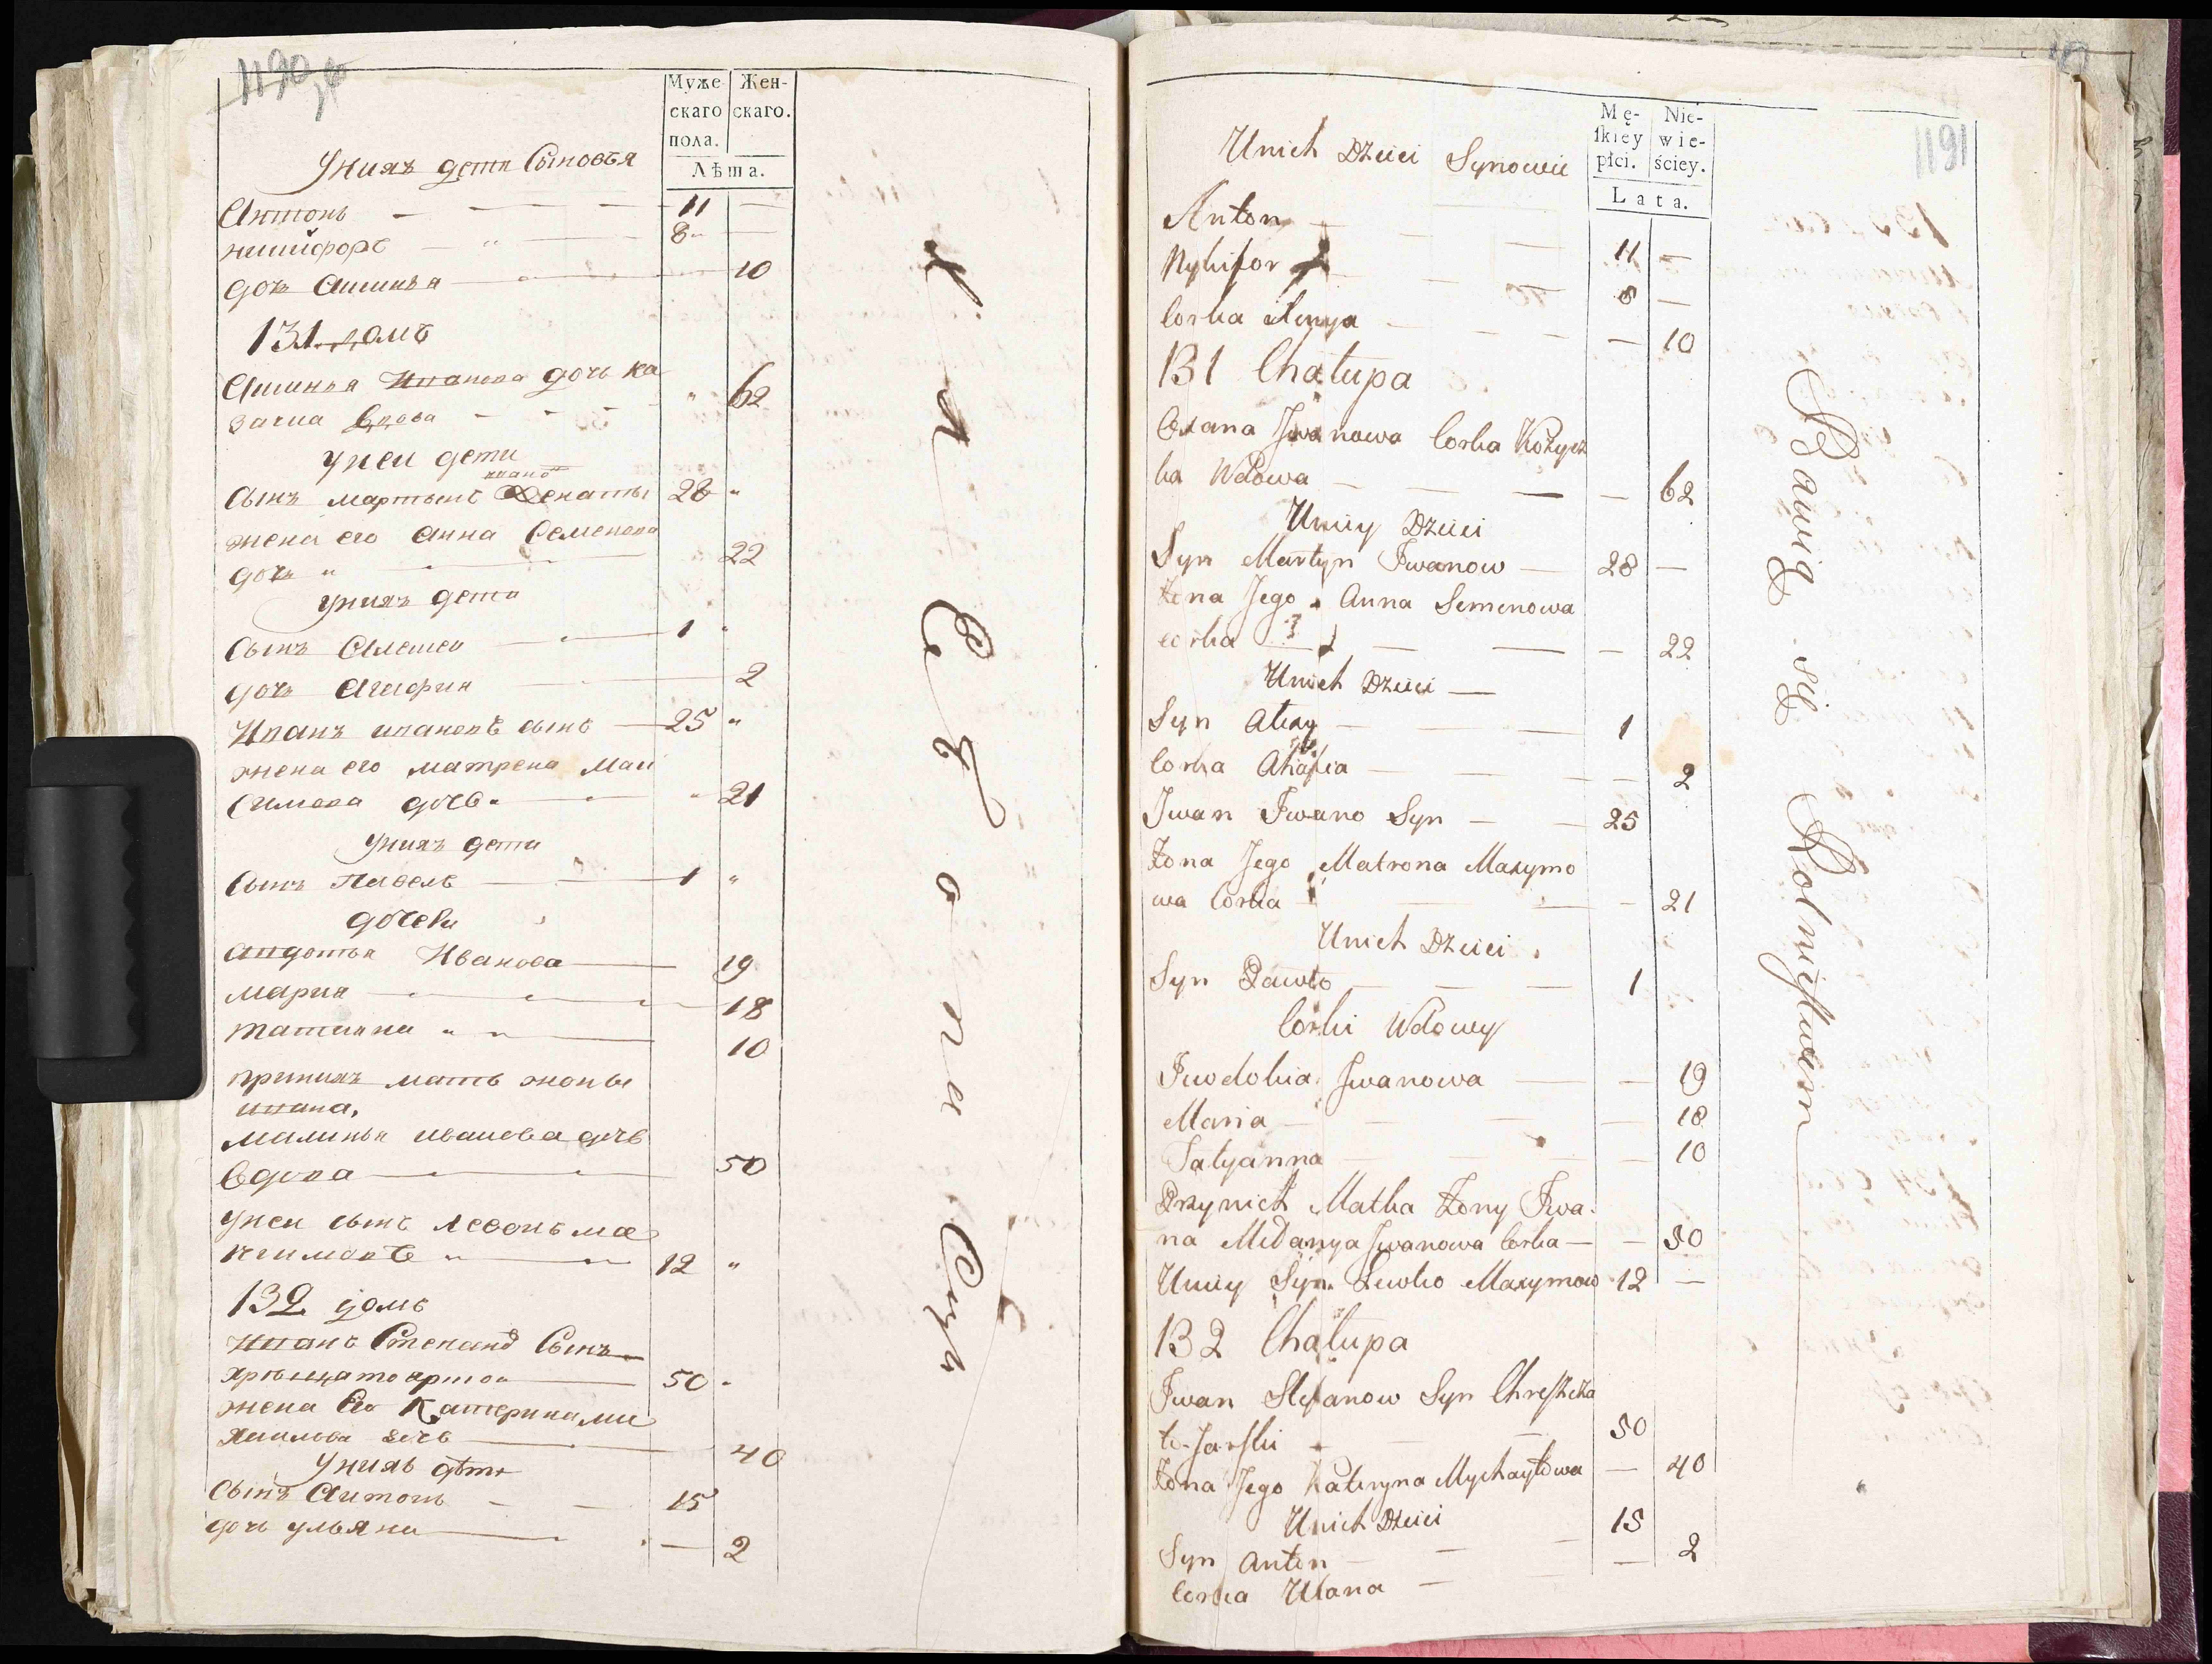 1190
Муже-
скаго
пола.
Жен-
скаго.
Лѣта.
Унихъ дети Сыновья
Антонъ 11
никифоръ 8
дочь Аксинья 10
131. домъ
Аксинья Иванова дочь ка
зачка вдова 62
Унеи дети
Сынъ мартынъ ивано 28
жена его анна Семенова
дочь 22
Унихъ дети
Сынъ Алексеи 1
дочь Агафия 2
Иванъ ивановъ сынъ 25
жена его матрена Мак
симова дочь 21
Унихъ дети
Сынъ Павелъ 1
дочери
авдотья Иванова 19
мария 18
татияна 10
принихъ мать жоны
ивана,
малинья иванова дочь
вдова 50
Унеи сынъ левонъ ма
ксимовъ 12
132 домъ
Иванъ Степановъ Сынъ
50
жена Его Катерина ми
хаилова дочь 40
Унихъ дети
Сынъ Антонъ 15
дочь ульяна 2
1191
Mę-
ſkiey
płci.
Nie-
wie-
ściey.
Lata.
Unich Dzieci Synowie
Anton 11
Nykifor 8
Corka 10
131 Chałupa
Oxana Iwanowa Corka Kozycz
ka Wdowa 62
Uniey Dzieci
Syn Martyn Iwanow 28
Żona Jego Anna Semenowa
corka 22
Unich Dzieci
Syn Alexy 1
Corka Ahafia 2
Iwan Iwano Syn 25
Żona Jego Matrona Maxymo
wa Corka 21
Unich Dzieci
Syn Pawło 1
Corki Wdowy
Iwdokia Iwanowa 19
Maria 18
Tatyanna 10
Przynich Matka Żony Iwa-
na Mełanya Iwanowa Corka 50
Uniey Syn Lewko Maxymow 12
132 Chałupa
Iwan Stefanow Syn Chreſzcza
to-Jarſki 50
Żona Jego Kateryna Mychayłowa 40
Unich Dzieci
Syn Anton 15
Corka Ulana 2
Bawią się Rolnictwem